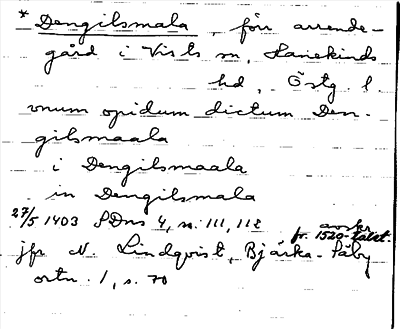 * Dengilsmala, förr arrende-
gård i Vists sn, Hanekinds
hd, Östg. l.
unum opidum dictum Den-
gilsmaala
i Dengilsmaala
in Dengilsmala
27/5 1403 SDns 1, s. 111, 112 avskr.
fr. 1520-talet.
jfr N. Lindqvist, Bjärka-Säby
ortn. 1, s. 70